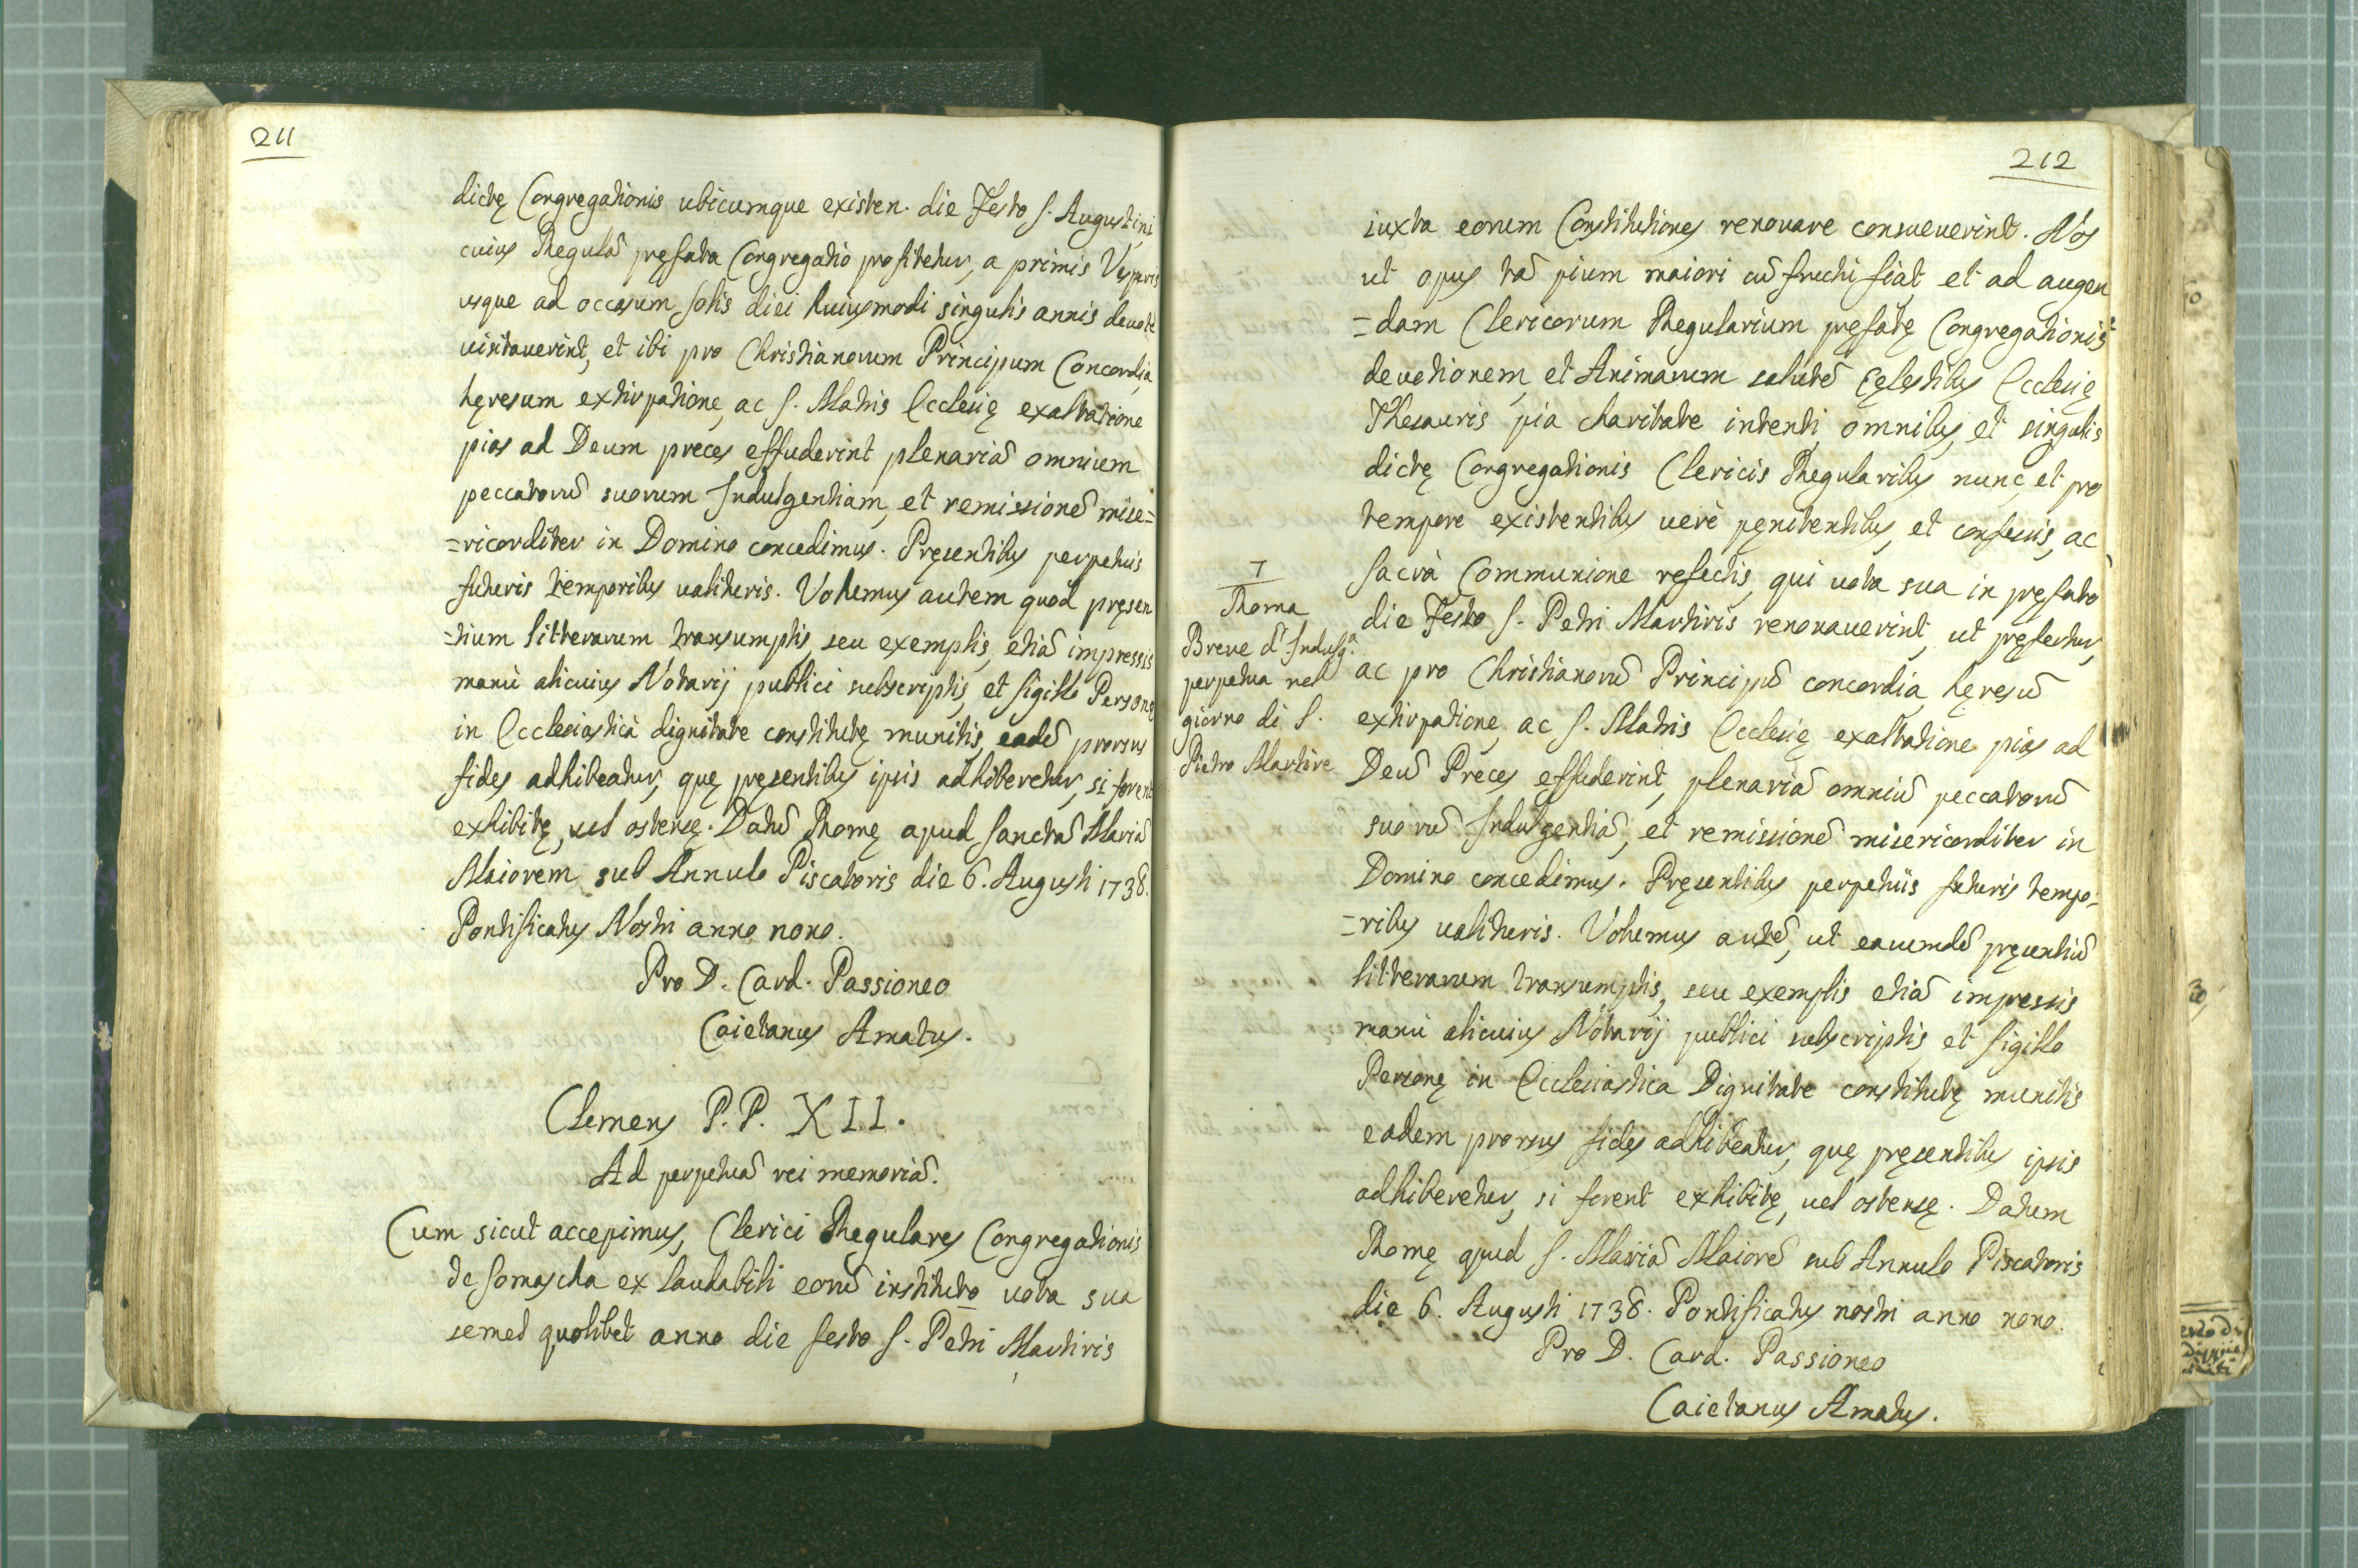 211
dictę Congregationis ubicumque existen. die Festo S. Augustini
cuius Regulā pręfata Congregatio profitetur, a primis Vesperis
usque ad occasum solis diei huiusmodi singulis annis devotè
uisitauerint, et ibi pro Christianorum Principum Concordia,
hęresum extirpatione, ac S. Matris Ecclesię exaltatione
pias ad Deum preces effuderint plenariā omnium
peccatorū suorum Indulgentiam, et remissionē mise=
=ricorditer in Domino concedimus. Pręsentibus perpetuis
futuris temporibus ualituris. Volumus autem quod pręsen
=tium litterarum transumptis, seu exemplis, etiā impressis
manù alicuius Notarij publici subscriptis, et sigillo Personę
in Ecclesiasticà dignitate constitutę munitis, eadē prorsus
fides adhibeatur, quę pręsentibus ipsis adhiberetur, si forent
exhibitę, uel ostensę. Datū Romę apud Sanctā Mariā
Maiorem sub Annulo Piscatoris die 6. Augusti 1738.
Pontificatus Nostri anno nono.
Pro D. Card. Passioneo
Caietanus Amatus.
Clemens P.P. XII.
Ad perpetuā rei memoriā.
Cum sicut accepimus, Clerici Regulares Congregationis
de Somascha ex laudabili eorū instituto uota sua
semel quolibet anno die festo S. Petri Martiris
212
iuxta eorum Constitutiones renouare consueuerint. Nos
ut opus tā pium maiori cū fructu fiat et ad augen
=dam Clericorum Regularium pręfatę Congregationis
deuotionem, et Animarum salutē Cęlestibus Ecclesię
Thesauris pia charitate intenti, omnibus, et singulis
dictę Congregationis Clericis Regularibus nunc, et pro
tempore existentibus uerè pęnitentibus, et confessis, ac
Sacrà Communione refectis, qui uota sua in pręfato
die Festo S. Petri Martiris renouauerint, ut pręfertur,
ac pro Christianorū Principū concordia, hęresū
extirpatione, ac S. Matris Ecclesię exaltatione pias ad
Deū Preces effuderint, plenariā omniū peccatorū
suorū Indulgentiā, et remissionē misericorditer in
Domino concedimus. Pręsentibus perpetuis futuris tempo=
=ribus ualituris. Volumus autē, ut earumdē pręsentiū
litterarum transumptis, seu exemplis etiā impressis
manù alicuius Notarij publici subscriptis, et sigillo
Personę in Ecclesiastica Dignitate constitutę munitis
eadem prorsus fides adhibeatur, quę pręsentibus ipsis
adhiberetur, si forent exhibitę, uel ostensę. Datum
Romę apud S. Mariā Maiorē sub Annulo Piscatoris
die 6. Augusti 1738. Pontificatus nostri anno nono.
Pro D. Card. Passioneo
Caietanus Amatus.
7
Roma
Breue d'Indulg.ª
perpetua nel
giorno di S.
Pietro Martire